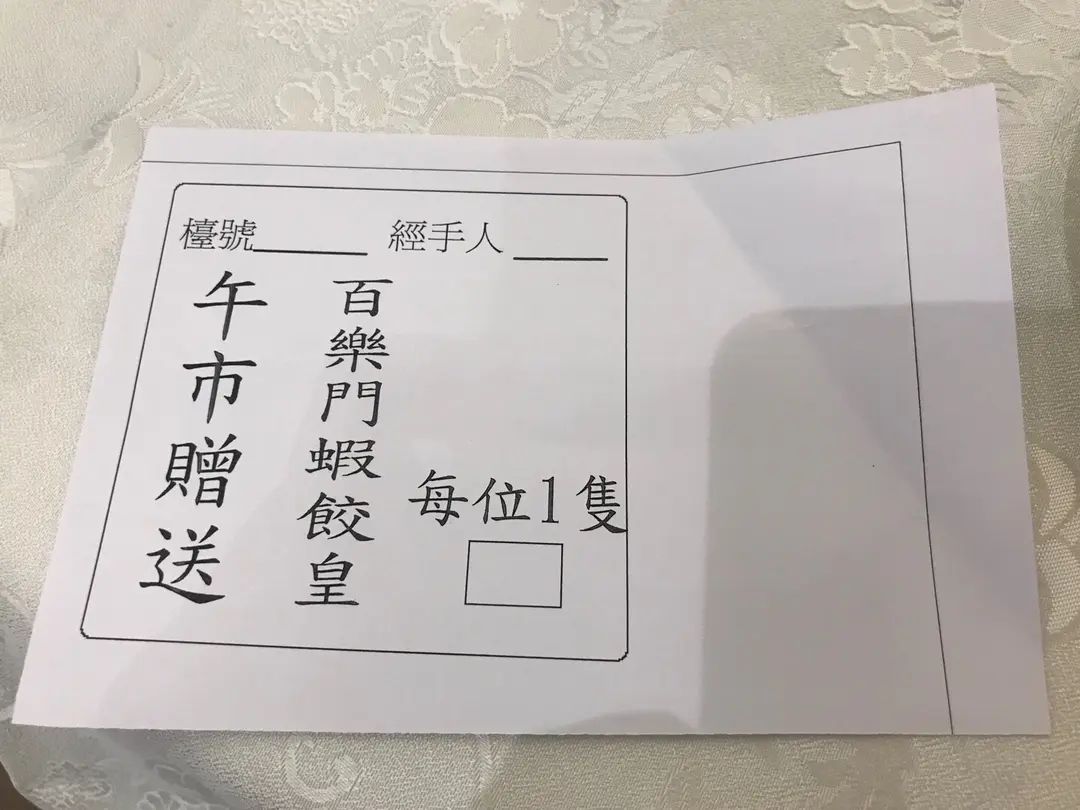 檯號______ 經手人_____
午市贈送
百樂門蝦餃皇
每位1隻